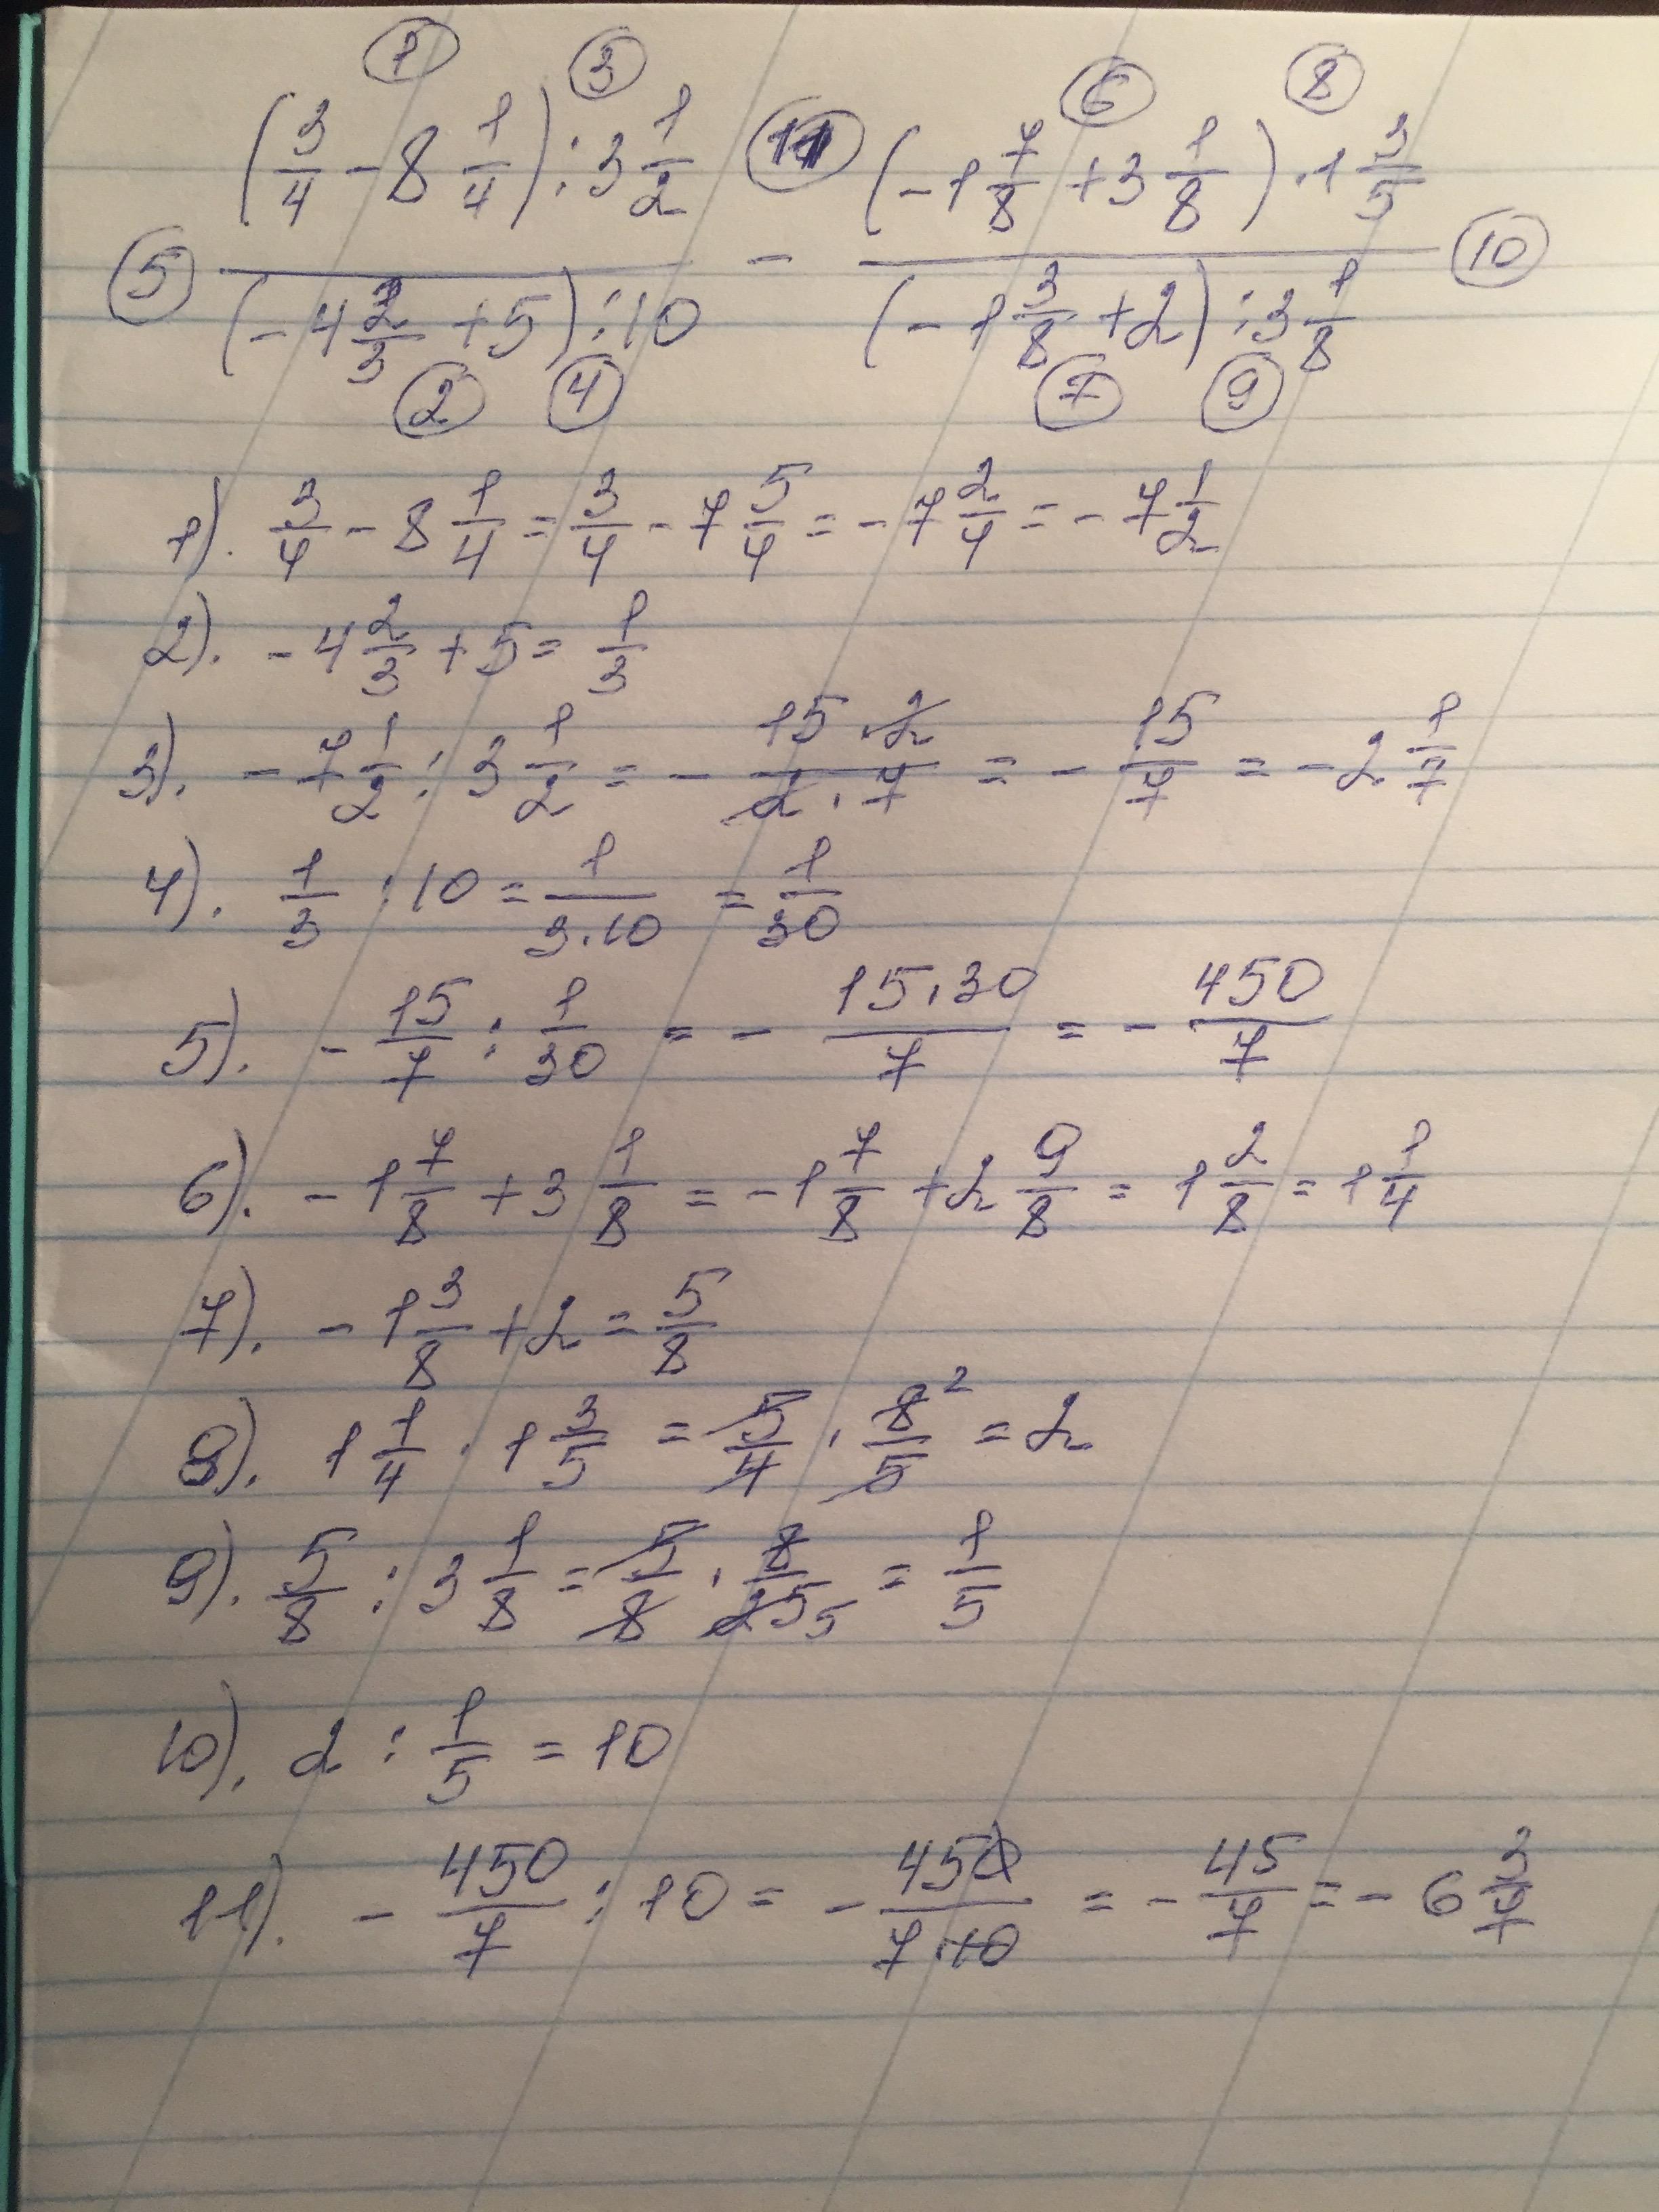 ① ③ ⑥ ⑧
(3/4 - 8 1/4) : 3 1/2 ⑪ (-1 7/8 + 3 1/8) · 1 3/5
⑤ - ⑩
(-4 2/3 + 5) : 10 (-1 3/8 + 2) : 3 1/8
② ④ ⑦ ⑨
1). 3/4 - 8 1/4 = 3/4 - 7 5/4 = - 7 2/4 = - 7 1/2
2). - 4 2/3 + 5 = 1/3
3). - 7 1/2 : 3 1/2 = - 15 · 2/2 · 7 = - 15/7 = - 2 1/7
4). 1/3 : 10 = 1/3 · 10 = 1/30
5). - 15/7 : 1/30 = - 15 · 30/7 = - 450/7
6). - 1 7/8 + 3 1/8 = - 1 7/8 + 2 9/8 = 1 2/8 = 1 1/4
7). - 1 3/8 + 2 = 5/8
8). 1 1/4 · 1 3/5 = 5/4 · 8²/5 = 2
9). 5/8 : 3 1/8 = 5/8 · 8/25 5 = 1/5
10). 2 : 1/5 = 10
11). - 450/7 : 10 = - 450/7 · 10 = - 45/7 = - 6 3/7